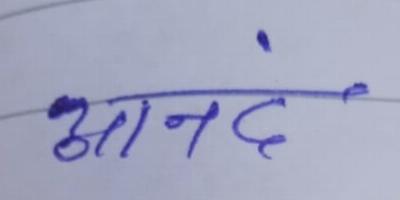 आनदं